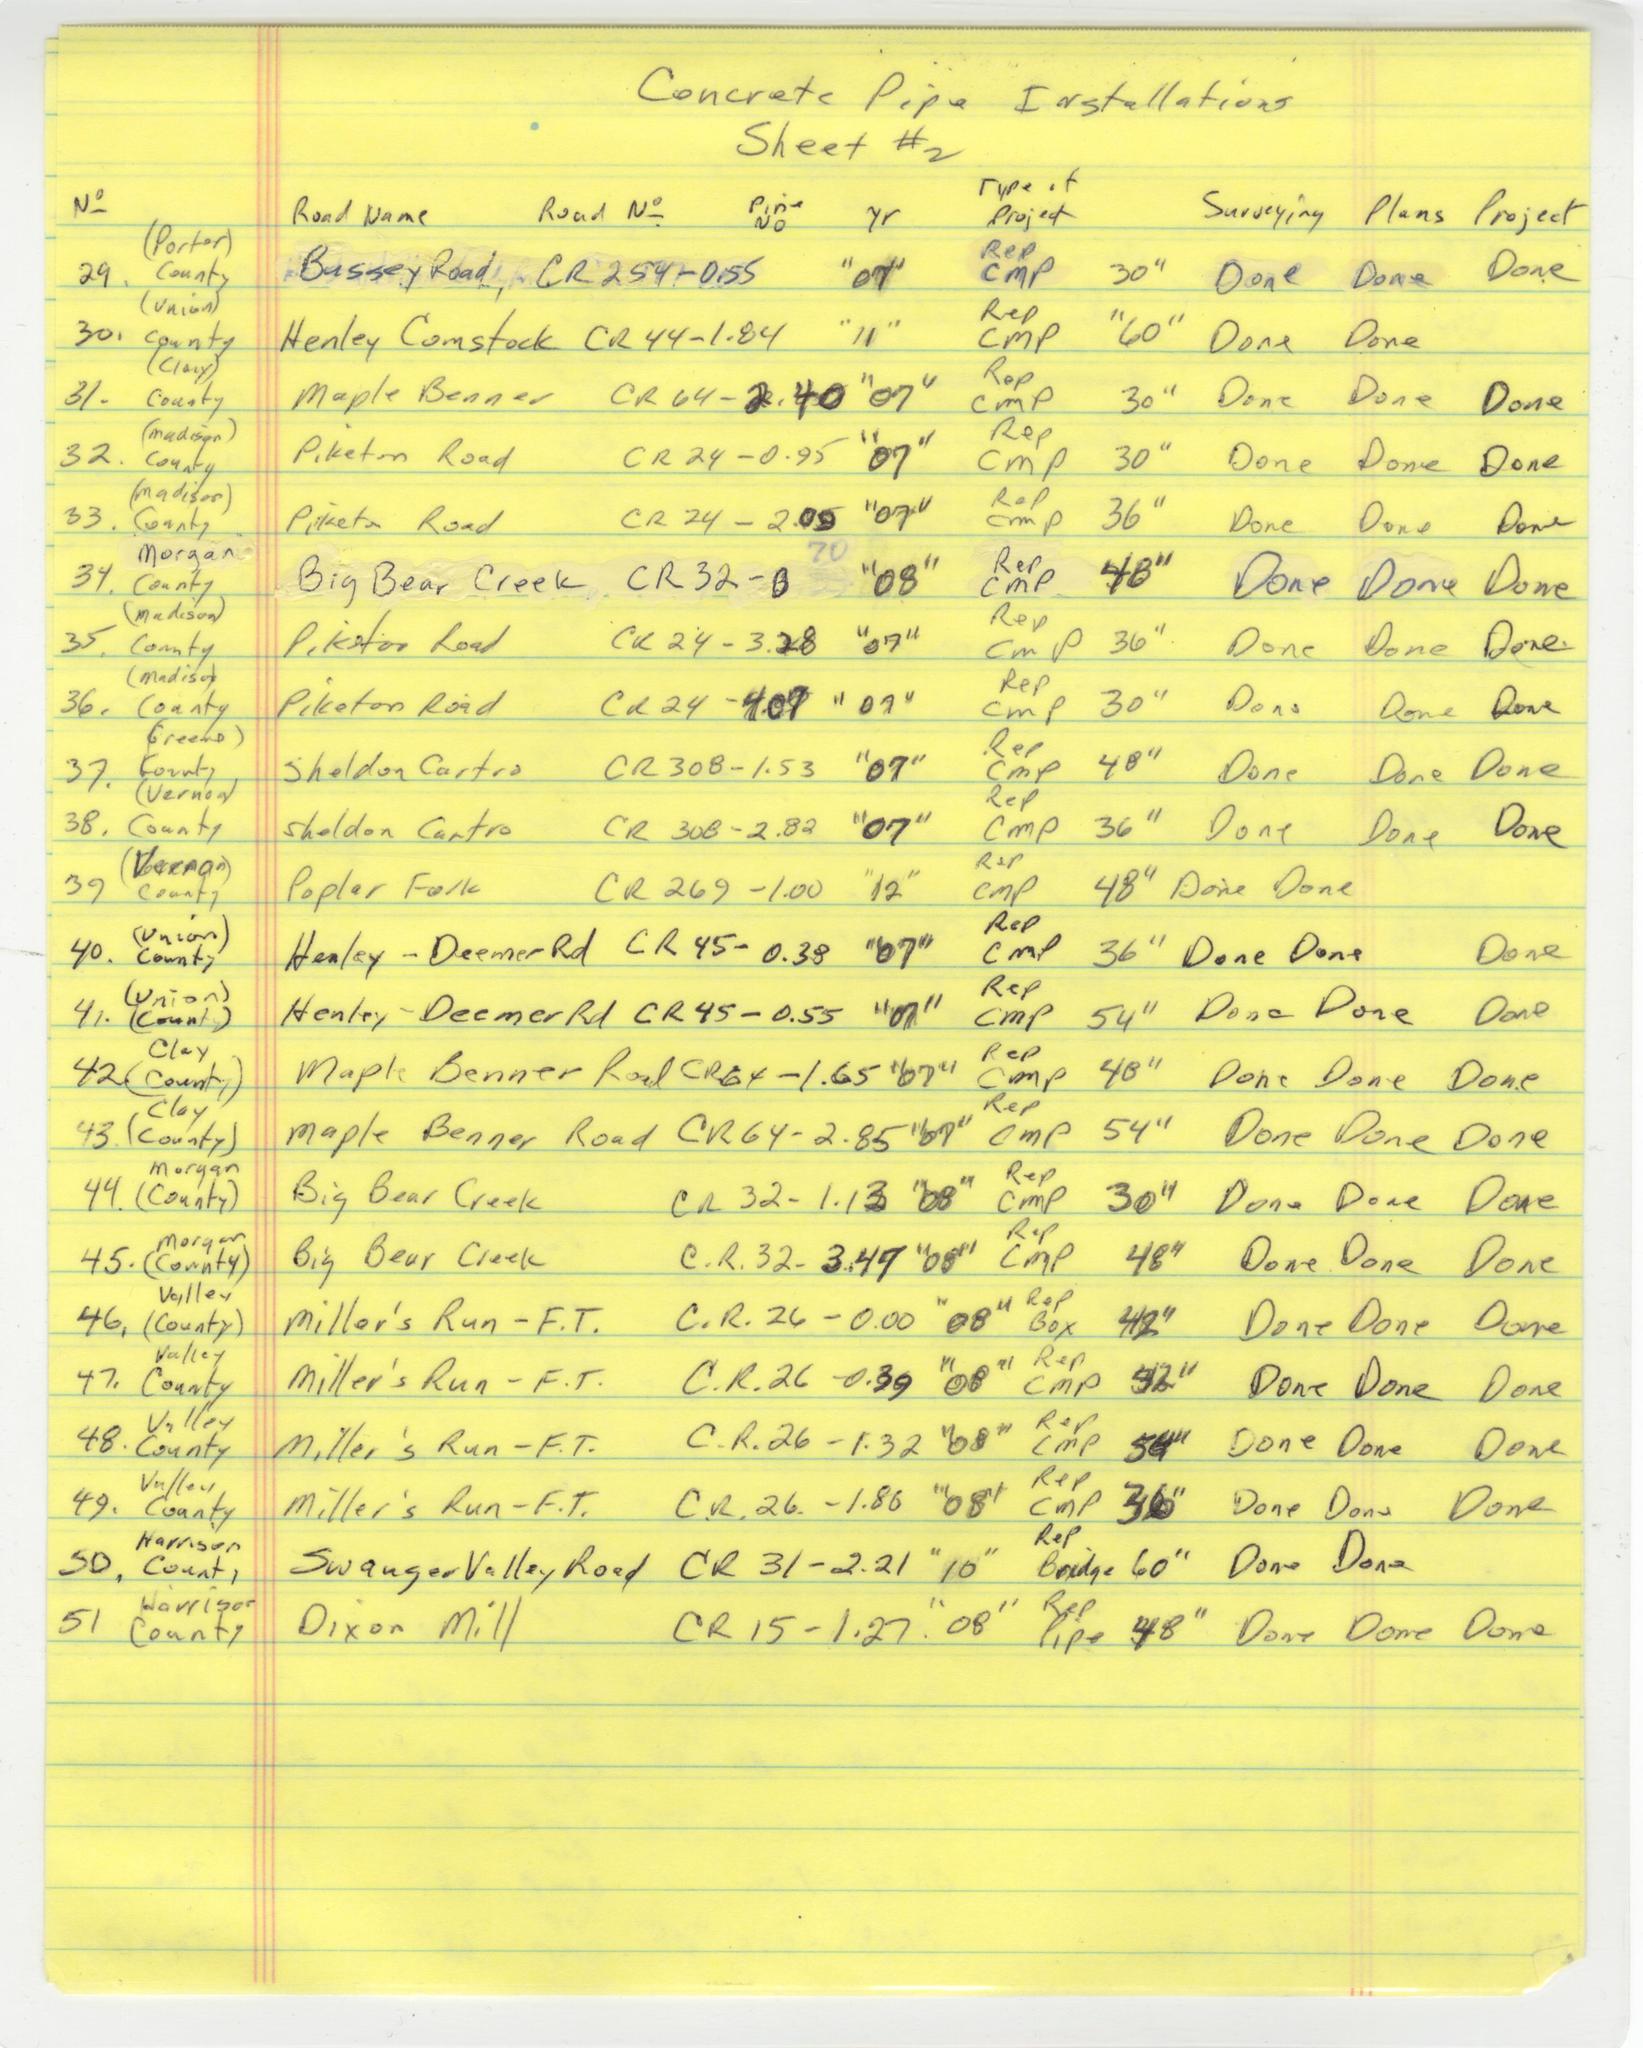 Concrete Pipe Installations
Sheet #2
Nº Road Name Road Nº Pipe No yr Type of Project Surveying Plans Project
29. (Porter) County Bussey Road, CR 254-0.55 "07" Rep CMP 30" Done Done Done
30. (Union) County Henley Comstock CR 44-1.84 "11" Rep CMP "60" Done Done
31. (Clay) County Maple Benner CR 64-2.40 "07" Rep CMP 30" Done Done Done
32. (Madison) County Piketon Road CR 24-0.95 "07" Rep CMP 30" Done Done Done
33. (Madison) County Piketon Road CR 24-2.05 "07" Rep CMP 36" Done Done Done
34. Morgan County Big Bear Creek CR 32-0 70 "08" Rep CMP 48" Done Done Done
35. (Madison) County Piketon Road CR 24-3.28 "07" Rep CMP 36" Done Done Done
36. (Madison) County Piketon Road CR 24-4.07 "07" Rep CMP 30" Done Done Done
37. Greene) County Sheldon Cartro CR 308-1.53 "07" Rep CMP 48" Done Done Done
38. (Vernon) County Sheldon Cartro CR 308-2.82 "07" Rep CMP 36" Done Done Done
39 (Vernon) County Poplar Fork CR 269-1.00 "12" Rep CMP 48" Done Done
40. (Union) County Henley-Deemer Rd CR 45-0.38 "07" Rep CMP 36" Done Done Done
41. (Union) (County) Henley-Deemer Rd CR 45-0.55 "07" Rep CMP 54" Done Done Done
42 Clay (County) Maple Benner Road CR 64-1.65 "07" Rep CMP 48" Done Done Done
43. Clay (County) Maple Benner Road CR 64-2.85 "07" Rep CMP 54" Done Done Done
44. Morgan (County) Big Bear Creek CR 32-1.13 "08" Rep CMP 30" Done Done Done
45. Morgan (County) Big Bear Creek C.R. 32-3.47 "08" Rep CMP 48" Done Done Done
46. Valley (County) Miller's Run-F.T. C.R. 26-0.00 "08" Rep Box 42" Done Done Done
47. Valley County Miller's Run-F.T. C.R. 26-0.39 "08" Rep CMP Done Done Done
48. Valley County Miller's Run-F.T. C.R. 26-1.32 "08" Rep CMP 54" Done Done Done
49. Valley County Miller's Run-F.T. C.R. 26-1.86 "08" Rep CMP Done Done Done
50. Harrison County Swanger Valley Road CR 31-2.21 "10" Rep Bridge 60" Done Done
51 Harrison County Dixon Mill CR 15-1.27 "08" Rep Pipe 48" Done Done Done